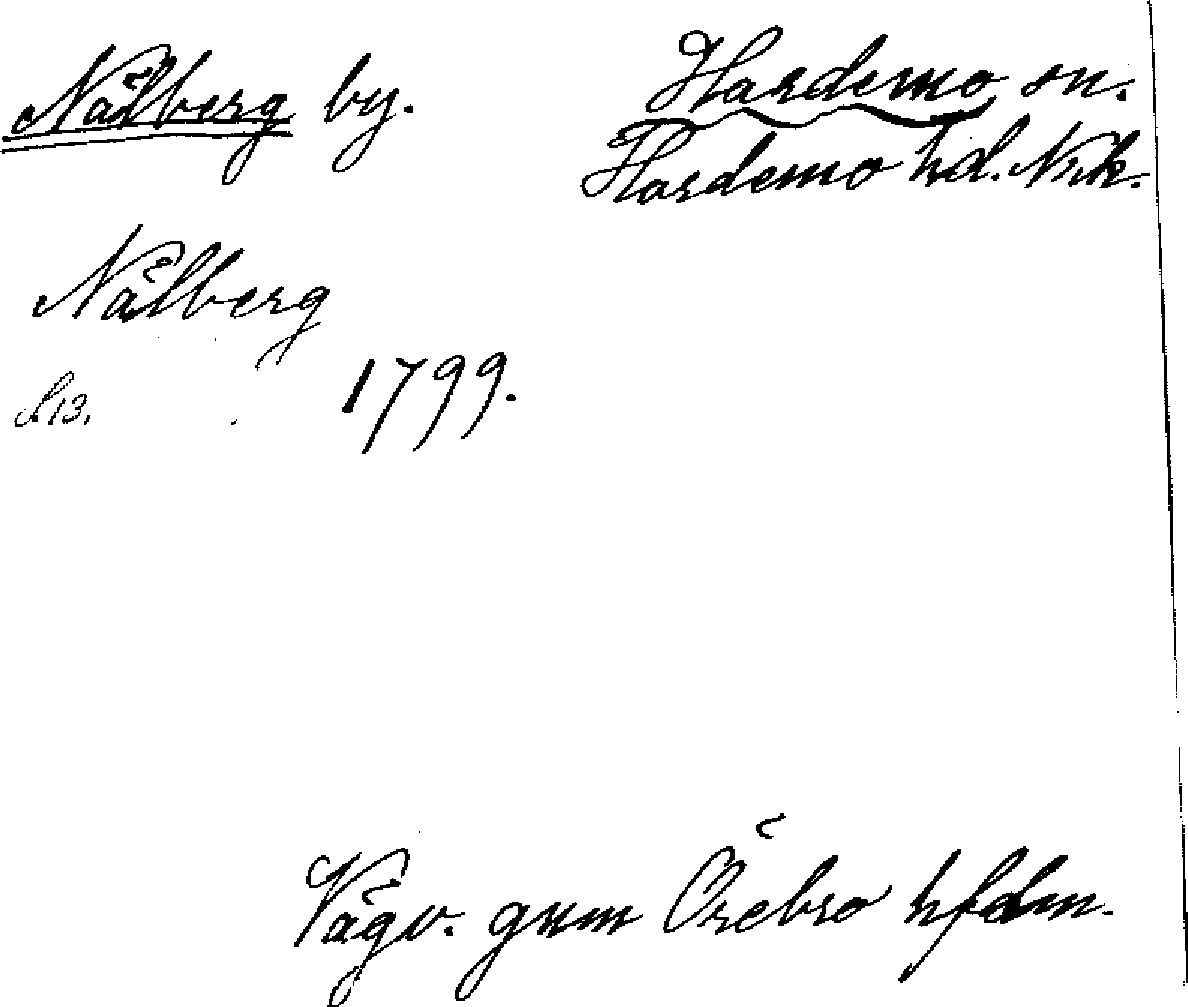 Nålberg by. Hardemo sn.
Hardemo hd. Nrk.
Nålberg
s. 13. 1799.
Vägv. gnm Örebro hfdm.